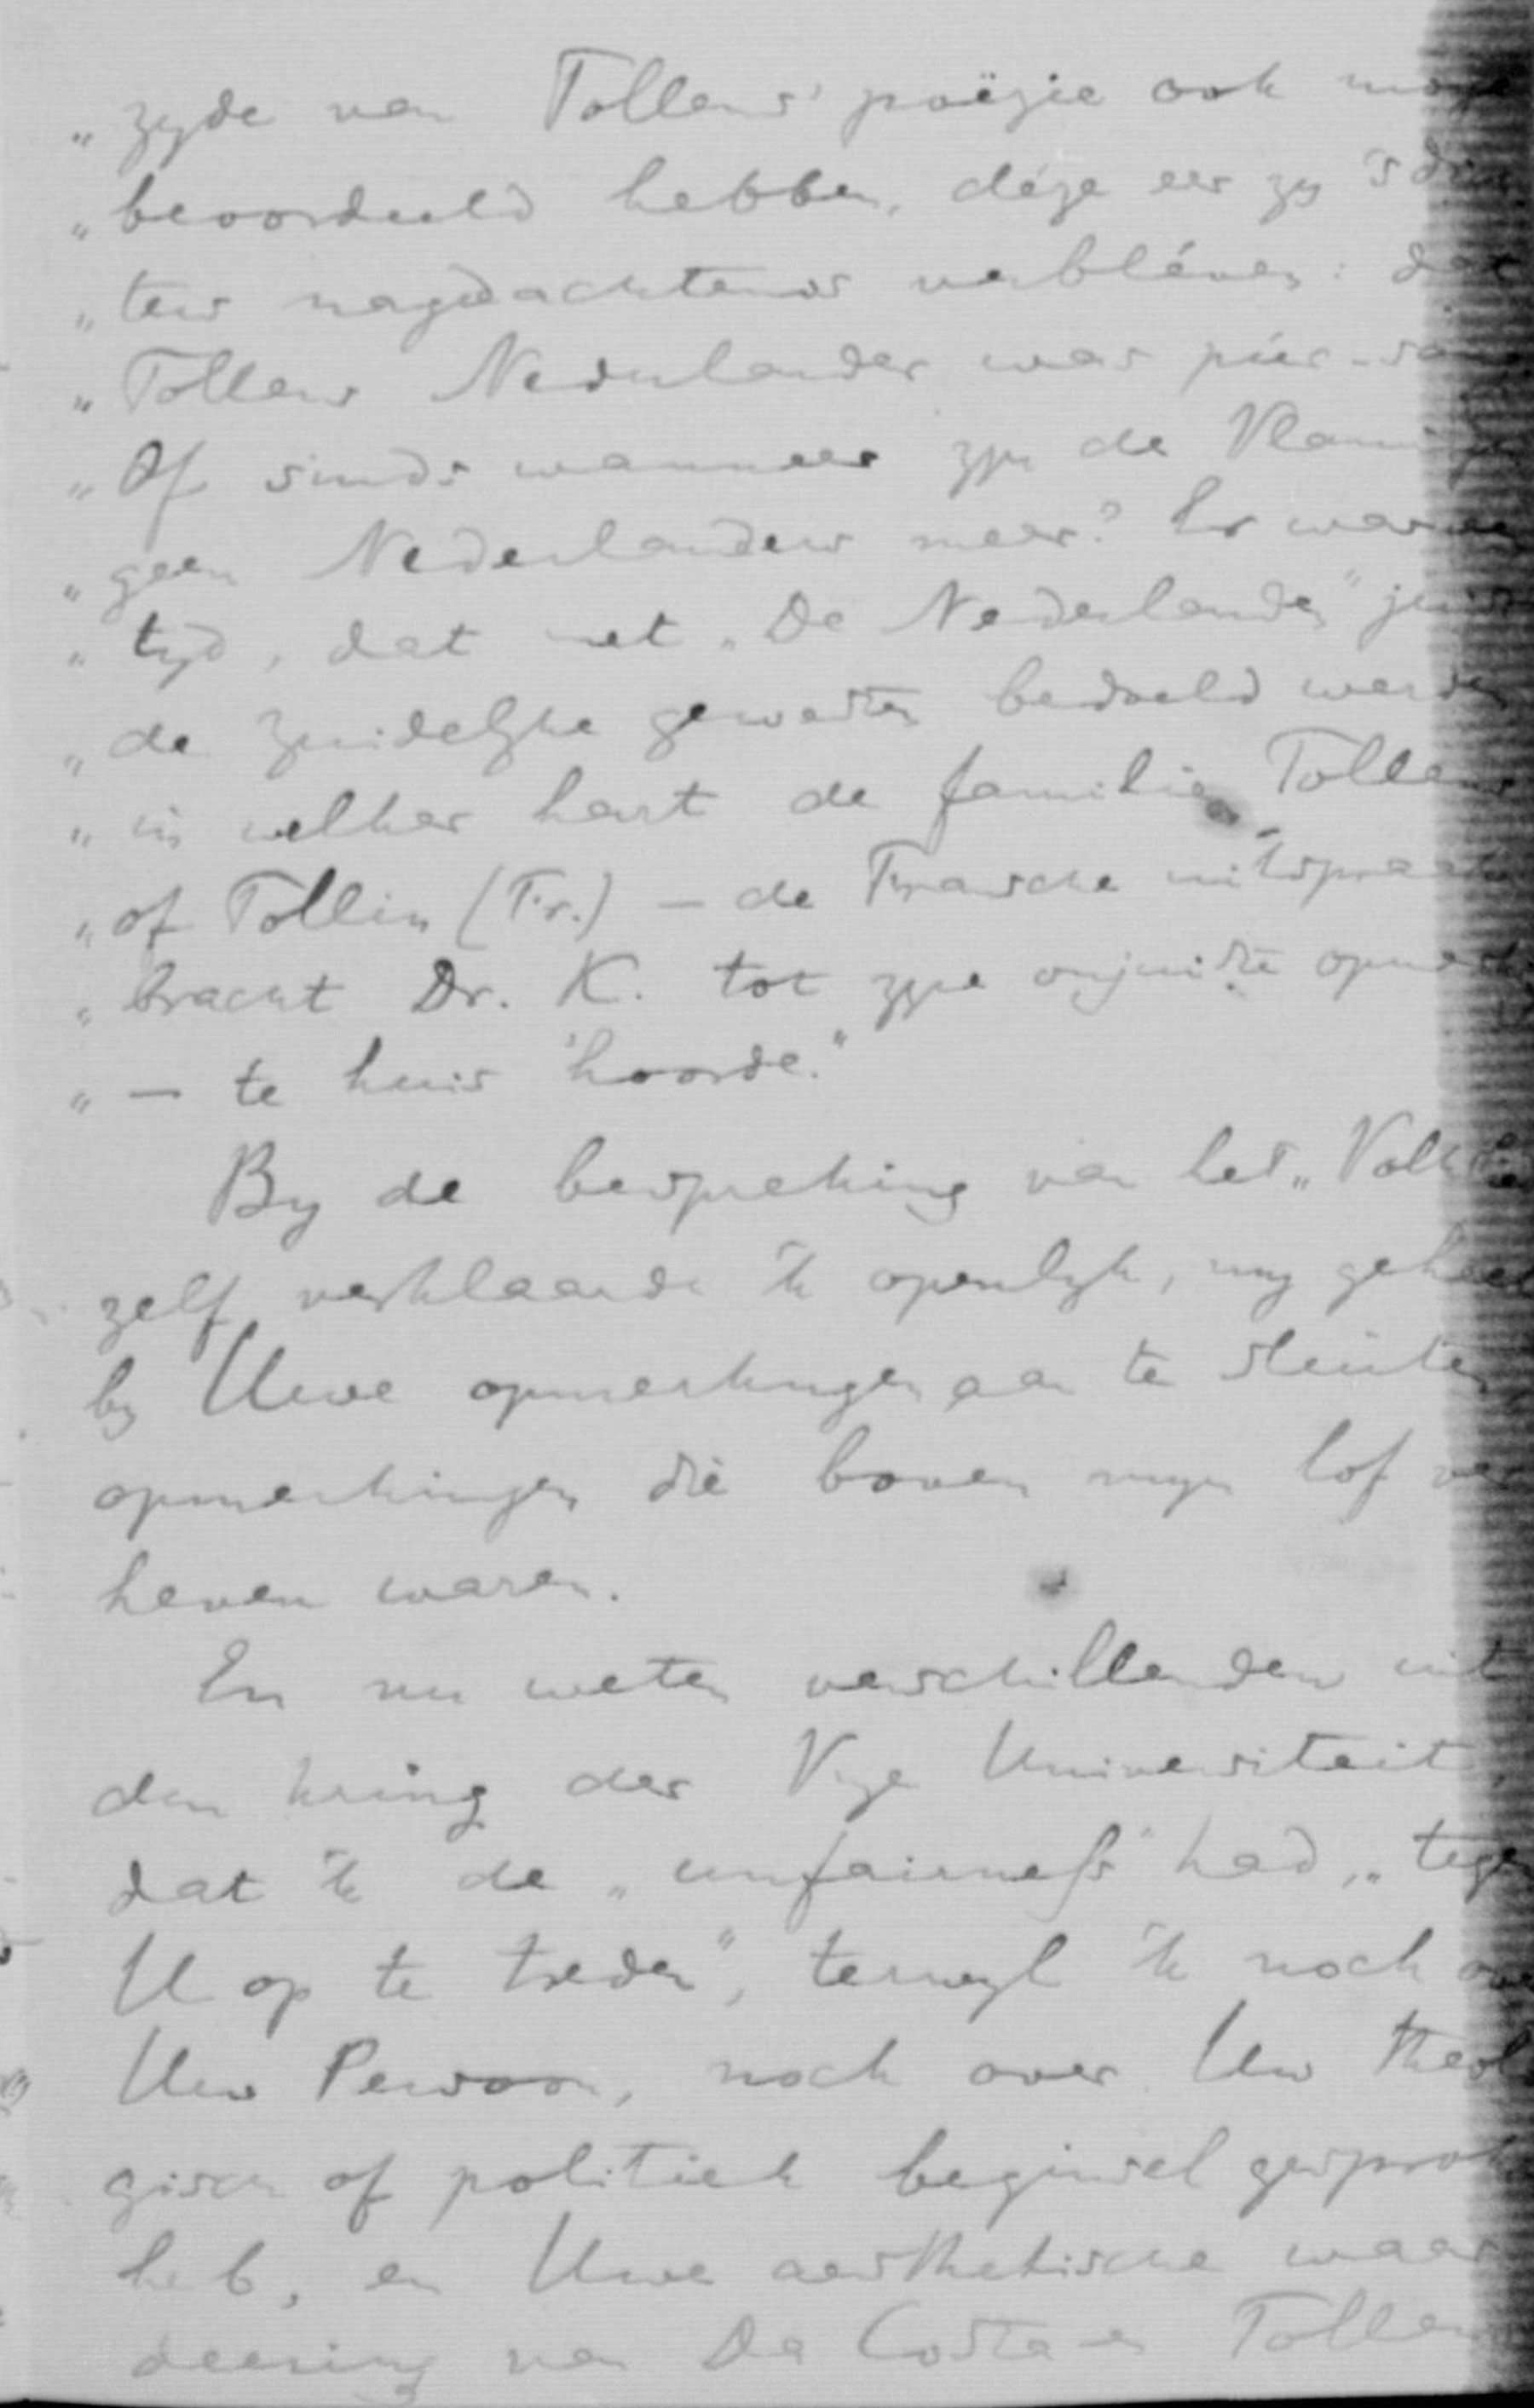 „ zyde van Tollens' poëzie ook moge
„ beoordeeld hebben, déze eer zy 's dich
„ ters nagedachtenis verbléven: dat
„ Tollens Nederlander was púr-sang
„ Of sinds wanneer zyn de Vlamin
„ geen Nederlanders meer? Er was een
„ tyd, dat met „De Nederlanden" juist
„ de zuidelyke gewesten bedoeld werden
„ in welker hart de familie Tollens
„ of Tollin (Fr.) – de Fransche uitspraak
„ bracht Dr. K. tot zyne onjuiste opmerk
„ – te huis hoorde."
By de bespreking van het „Volkslied
zelf verklaarde ik openlyk, my geheel
by Uwe opmerkingen aan te sluiten
opmerkingen die boven myn lof ver
heven waren.
En nu weten verschillenden uit
den kring der Vrye Universiteit,
dat ik de „unfairness" had, „tegen
U op te treden", terwyl ik noch over
Uw Persoon, noch over Uw theolo
gisch of politiek beginsel gesproken
heb, en Uwe aesthetische waar
deering van Da Costa en Tollens